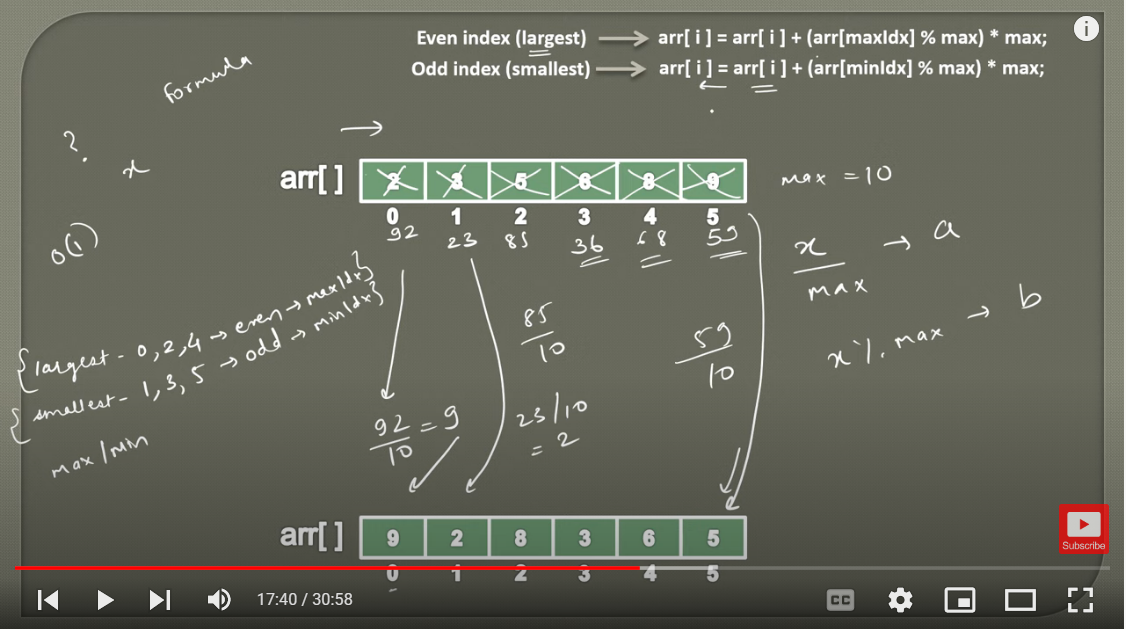 Even index (largest) → arr[ i ] = arr[ i ] + (arr[maxIdx] % max) * max;
Odd index (smallest) → arr[ i ] = arr[ i ] + (arr[minIdx] % max) * max;
i
formula
?
x
O(1)
arr[ ] 2 3 5 6 8 9
max = 10
0 1 2 3 4 5
92 23 85 36 68 59
x/max → a
x % max → b
largest - 0, 2, 4 → even → maxIdx
smallest - 1, 3, 5 → odd → minIdx
max/min
85/10
59/10
92/10 = 9
23/10
= 2
arr[ ] 9 2 8 3 6 5
0 1 2 3 4 5
Subscribe
17:40 / 30:58
CC